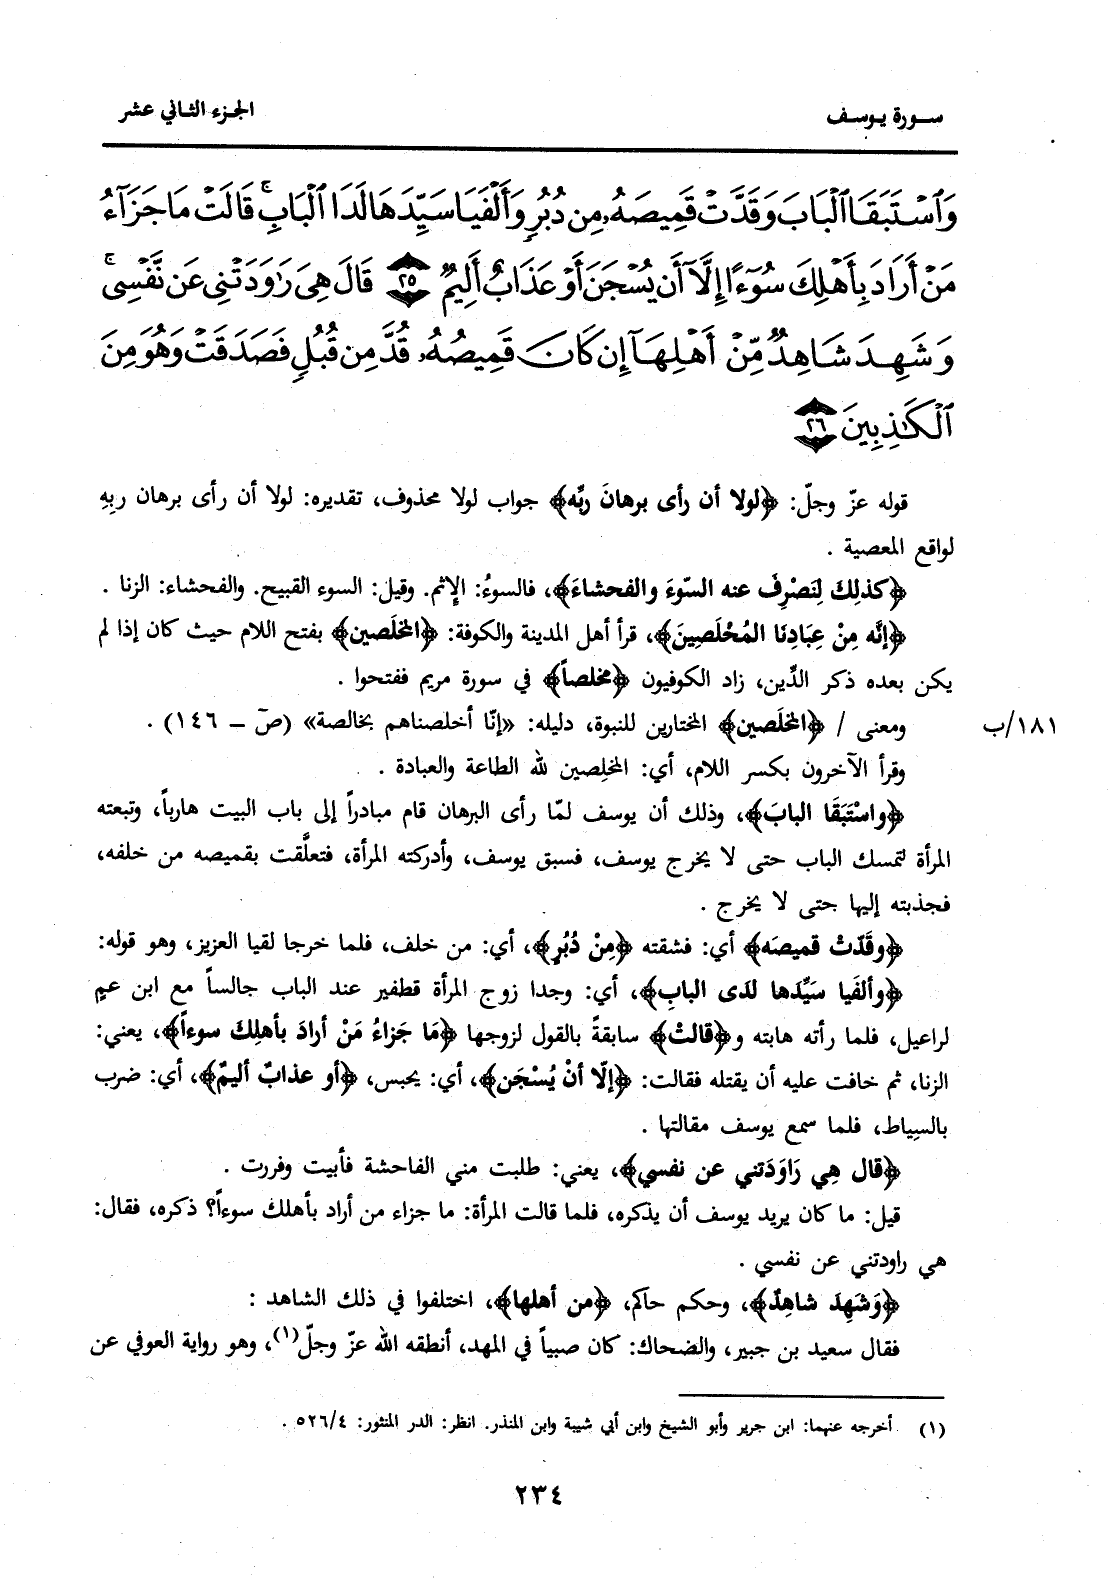 سورة يوسف
الجزء الثاني عشر
وَٱسۡتَبَقَا ٱلۡبَابَ وَقَدَّتۡ قَمِيصَهُۥ مِن دُبُرٖ وَأَلۡفَيَا سَيِّدَهَا لَدَا ٱلۡبَابِۚ قَالَتۡ مَا جَزَآءُ
مَنۡ أَرَادَ بِأَهۡلِكَ سُوٓءًا إِلَّآ أَن يُسۡجَنَ أَوۡ عَذَابٌ أَلِيمٞ ٢٥ قَالَ هِيَ رَٰوَدَتۡنِي عَن نَّفۡسِيۚ
وَشَهِدَ شَاهِدٞ مِّنۡ أَهۡلِهَآ إِن كَانَ قَمِيصُهُۥ قُدَّ مِن قُبُلٖ فَصَدَقَتۡ وَهُوَ مِنَ
ٱلۡكَٰذِبِينَ ٢٦
قوله عزّ وجلّ: ﴿لولا أن رأى برهانَ ربِّه﴾ جواب لولا محذوف، تقديره: لولا أن رأى برهان ربِهِ
لواقع المعصية .
﴿كذلِكَ لِنَصْرِفَ عنه السّوءَ والفحشاءَ﴾، فالسوءُ: الإِثم. وقيل: السوء القبيح. والفحشاء: الزنا .
﴿إنَّه مِنْ عِبَادِنَا المُخْلَصِينَ﴾، قرأ أهل المدينة والكوفة: ﴿المخلَصين﴾ بفتح اللام حيث كان إذا لم
يكن بعده ذكر الدِّين، زاد الكوفيون ﴿مخلصاً﴾ في سورة مريم ففتحوا .
ومعنى / ﴿المخلَصين﴾ المختارين للنبوة، دليله: «إنّا أخلصناهم بخالصة» (صۤ – ١٤٦) .
١٨١/ب
وقرأ الآخرون بكسر اللام، أي: المخلِصين لله الطاعة والعبادة .
﴿واسْتَبَقَا البابَ﴾، وذلك أن يوسف لمّا رأى البرهان قام مبادراً إلى باب البيت هارباً، وتبعته
المرأة لتمسك الباب حتى لا يخرج يوسف، فسبق يوسف، وأدركته المرأة، فتعلَّقت بقميصه من خلفه،
فجذبته إليها حتى لا يخرج .
﴿وقَدّتْ قميصَه﴾ أي: فشقته ﴿مِنْ دُبُرٍ﴾، أي: من خلف، فلما خرجا لقيا العزيز، وهو قوله:
﴿وألفَيا سَيِّدَها لدَى البابِ﴾، أي: وجدا زوج المرأة قطفير عند الباب جالساً مع ابن عمٍ
لراعيل، فلما رأته هابته و﴿قالتْ﴾ سابقةً بالقول لزوجها ﴿مَا جَزاءُ مَنْ أرادَ بأهلِكَ سوءاً﴾، يعني:
الزنا، ثم خافت عليه أن يقتله فقالت: ﴿إلّا أنْ يُسْجَن﴾، أي: يحبس، ﴿أو عذابٌ أليمٌ﴾، أي: ضرب
بالسِياط، فلما سمع يوسف مقالتها .
﴿قال هِي رَاوَدَتني عن نفسي﴾، يعني: طلبت مني الفاحشة فأبيت وفررت .
قيل: ما كان يريد يوسف أن يذكره، فلما قالت المرأة: ما جزاء من أراد بأهلك سوءاً؟ ذكره، فقال:
هي راودتني عن نفسي .
﴿وَشَهِدَ شاهِدٌ﴾، وحكم حاكم، ﴿من أهلها﴾، اختلفوا في ذلك الشاهد :
فقال سعيد بن جبير، والضحاك: كان صبياً في المهد، أنطقه الله عزّ وجلّ(١)، وهو رواية العوفي عن
(١) أخرجه عنهما: ابن جرير وأبو الشيخ وابن أبي شيبة وابن المنذر. انظر: الدر المنثور: ٥٢٦/٤ .
٢٣٤